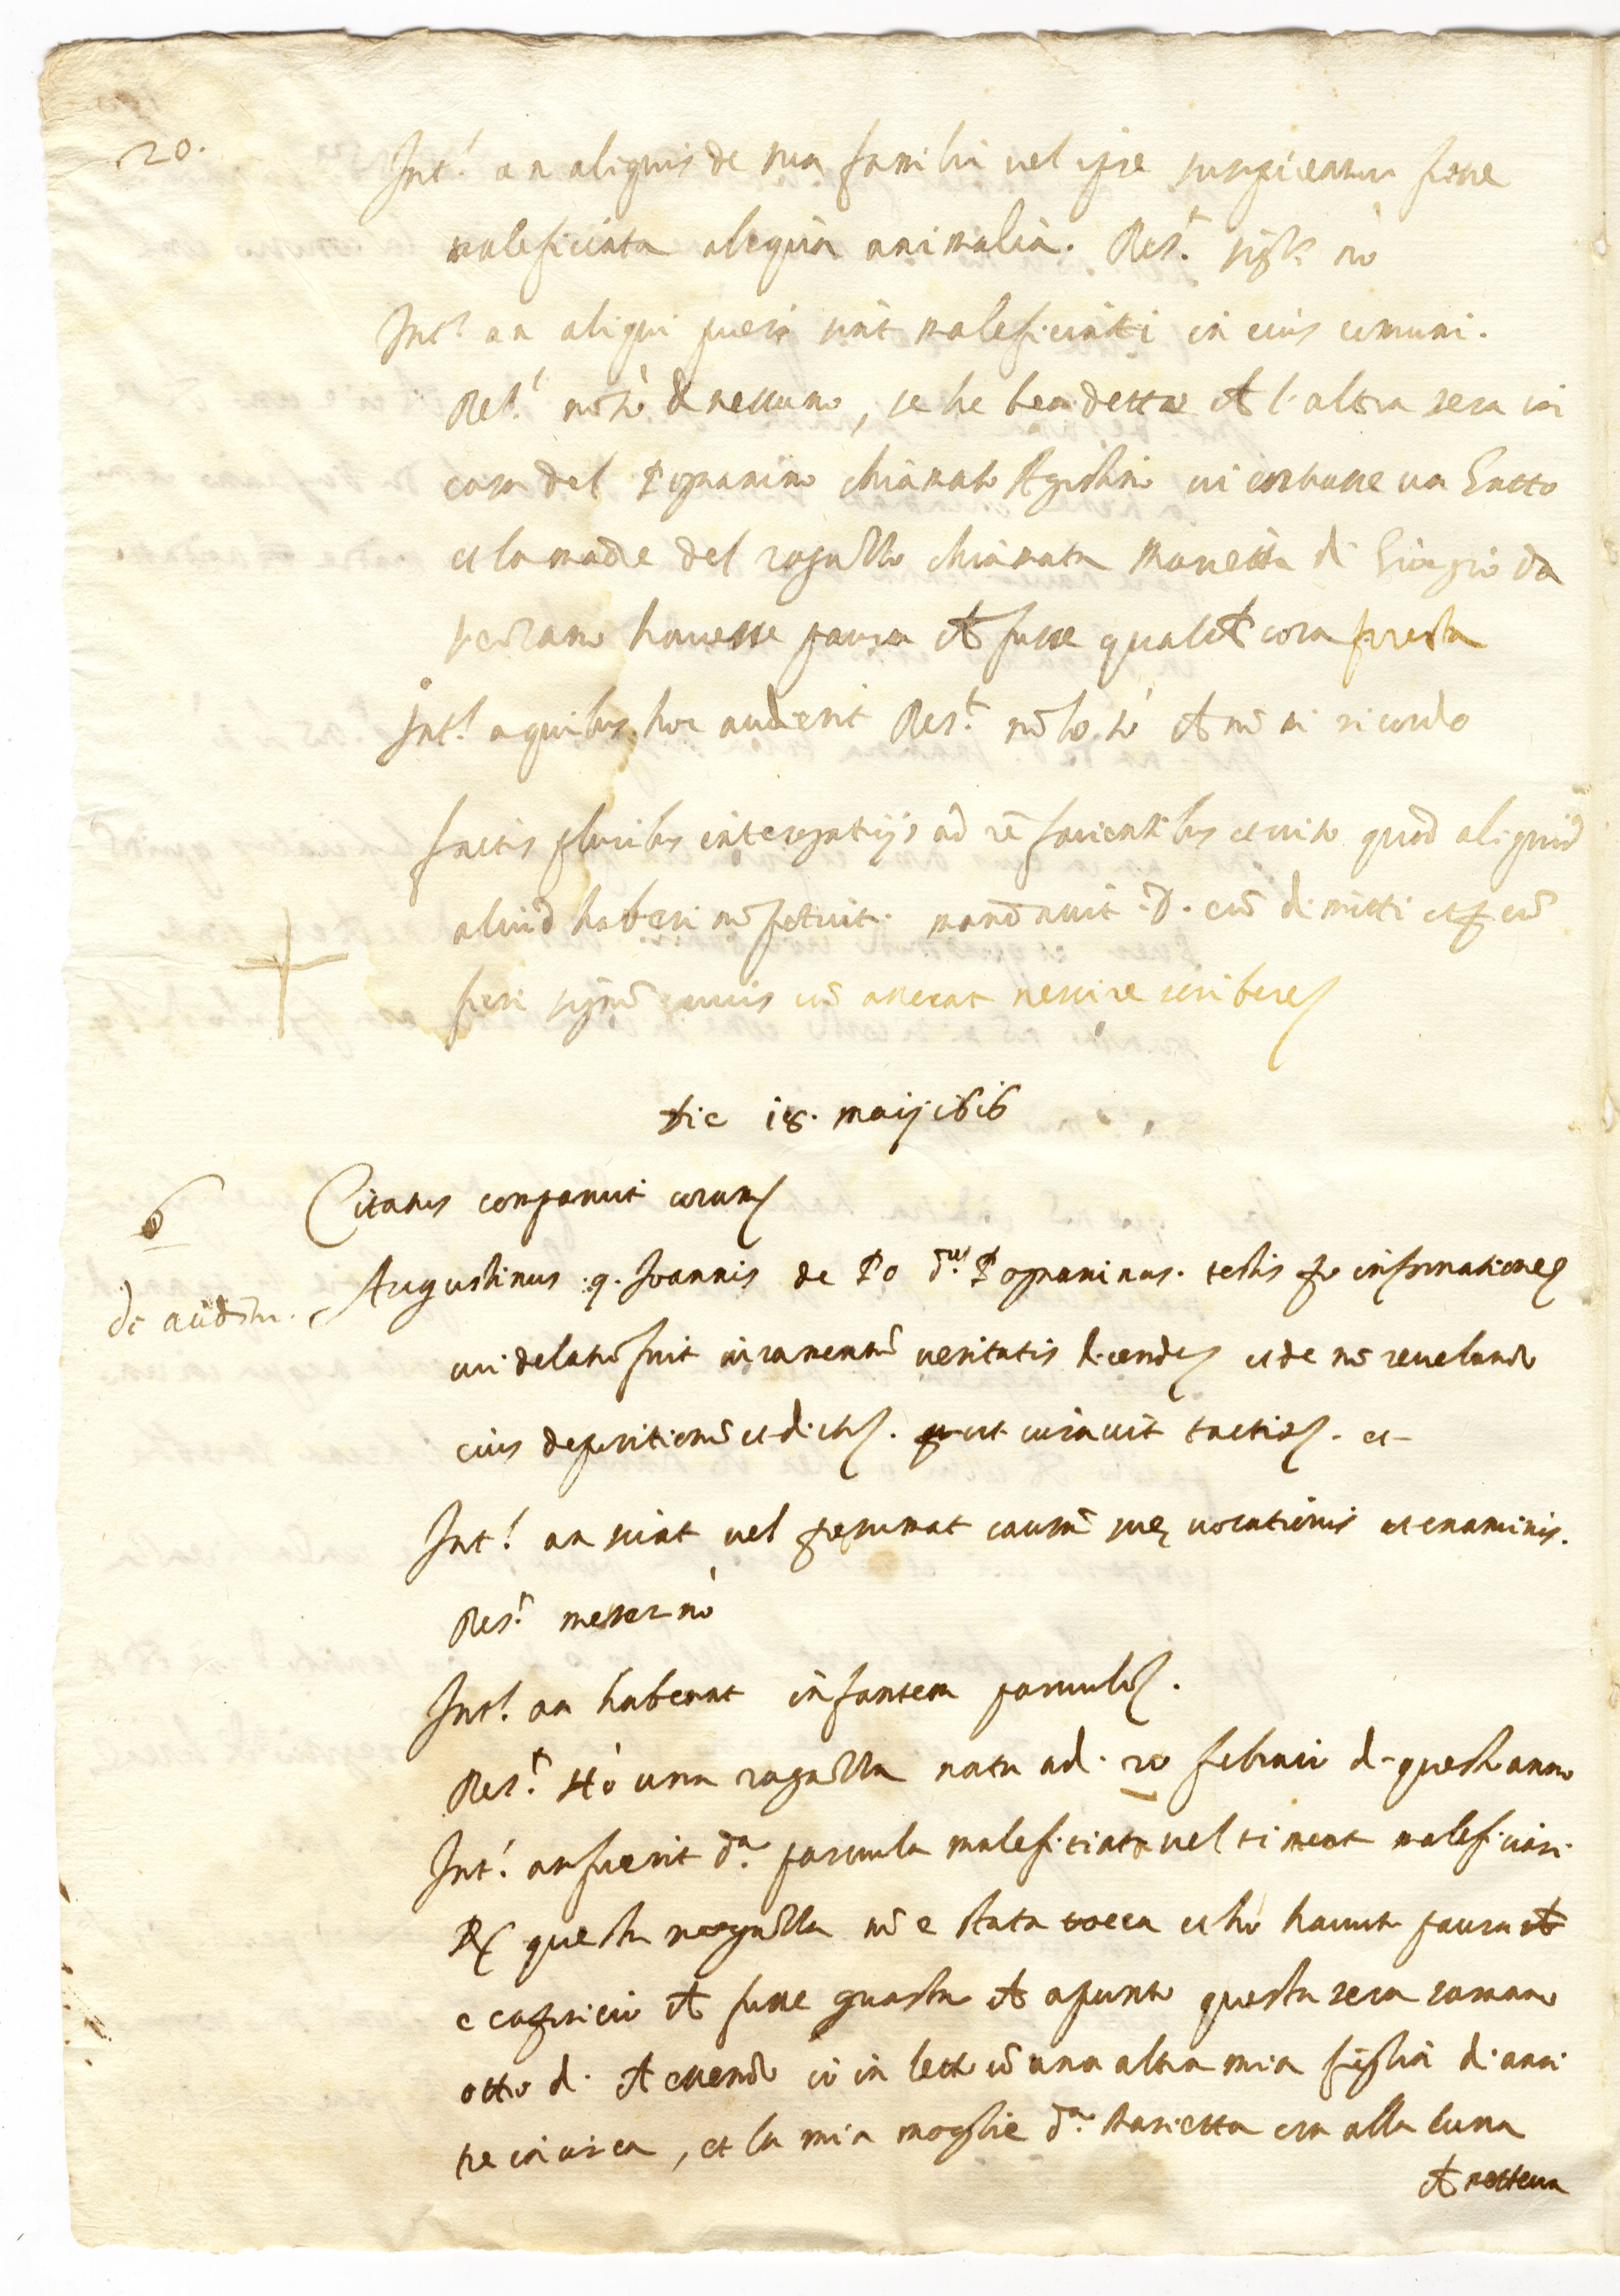 20.
Int.t an aliquis de sua familia vel ipse suspicentur fore
maleficiata aliqua animalia. Res.t sig.r nò
Int.t an aliqui pueri sint maleficiati in eius comuni.
Res.t nõ sò di nessuno, se he ben detto ch l'altra sera in
casa del Pognanino chiamato Agostino vi entrasse un Gatto
et la madre del ragazzo chiamata Marietta di Giorgio da
havesse paura ch fusse qualch cosa trista
Int.t a quibus hoc audierit Res.t nõ lo sò ch nõ mi ricordo
factis pluribus interogatijs ad rẽ facientibus et viso quod aliquid
aliud haberi nõ potuit. mandavit D. eũ dimitti et p eũ
fieri signũ crucis cũ asserat nescire scribere
Die 18. maij 1616
6
Citatus comparuit coram
de auditu.
Augustinus q. Joannis de Po d.us Pognaninus. testis p informatione
cui delatũ fuit iuramentũ veritatis dicende et de nõ revelando
eius depositionẽ et dicta. put iuravit tactis. et
Int.t an sciat vel presumat causã sue vocationis et examinis.
Res.t messer nò
Int.t an habeat infantem parvulũ.
Res.t Hò una ragazza nata ad. 20 febraio di quest anno
Int.t an fuerit d.a parvula malefitiata vel timeat maleficiari.
R questa ragazza nõ e stata tocca et hò havuto paura ch
e capricio ch fusse guasta ch apunto questa sera saranno
otto dì ch essendo io in letto cõ una altra mia figlia di anni
tre in circa, et la mia moglie d.a Marietta era alla cuna
ch metteva